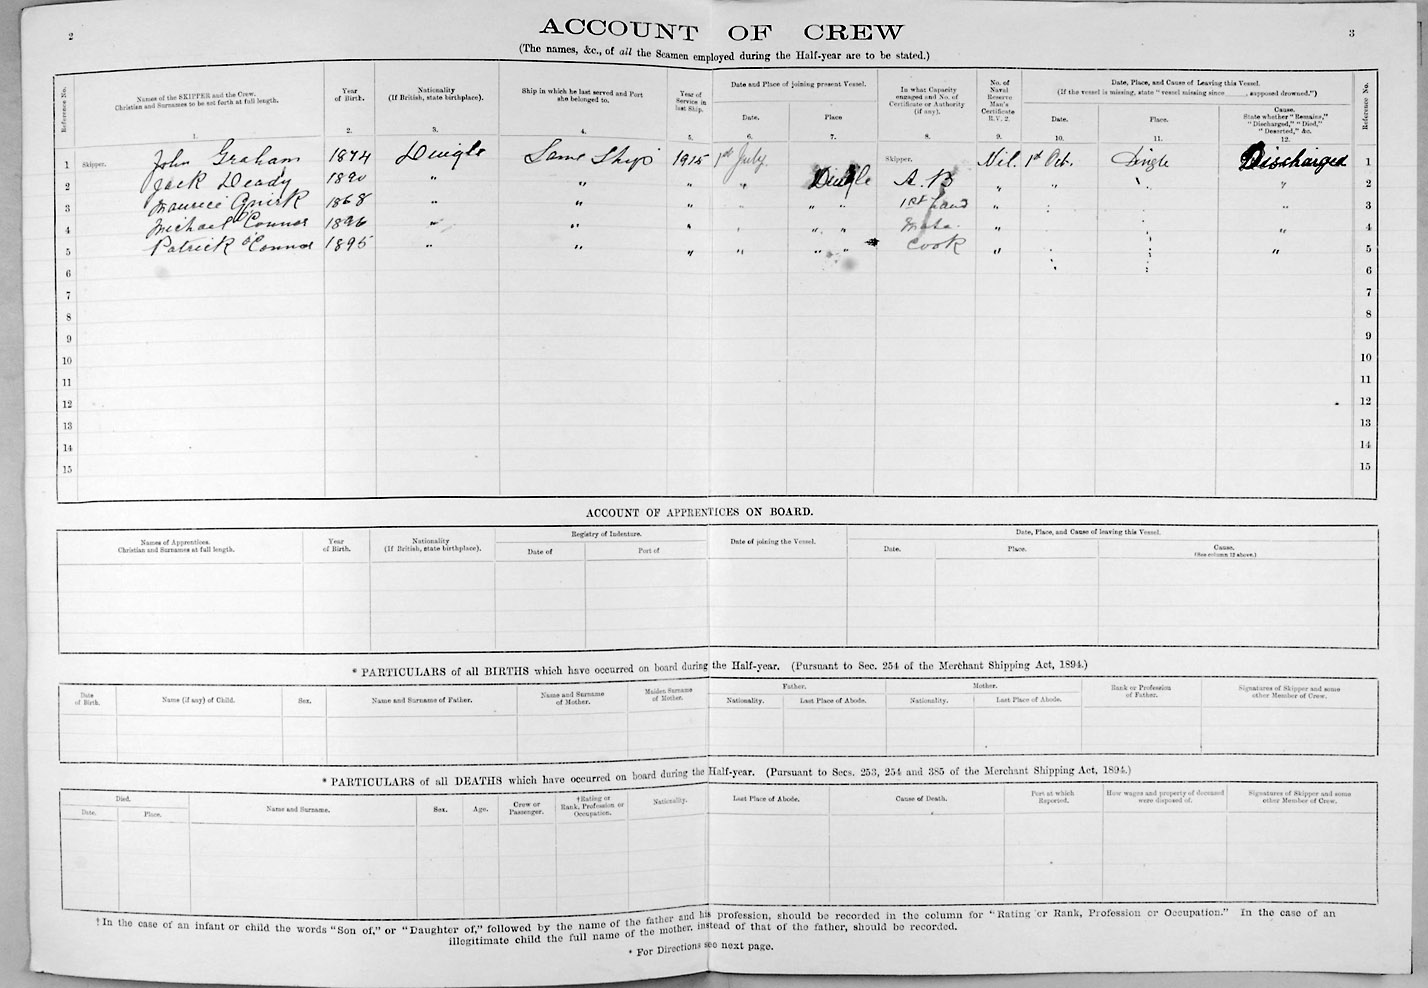 2
ACCOUNT OF CREW
3
(The names, &c., of all the Seamen employed during the Half-year are to be stated.)
Reference No.
Names of the SKIPPER and the Crew.
Christian and Surnames to be set forth at full length.
1.
Year
of Birth.
2.
Nationality
(If British, state birthplace).
3.
Ship in which he last served and Port
she belonged to.
4.
Year of
Service in
last Ship.
5.
Date and Place of joining present Vessel.
Date.
6.
Place
7.
In what Capacity
engaged and No. of
Certificate or Authority
(if any).
8.
No. of
Naval
Reserve
Man's
Certificate
R.V. 2.
9.
Date, Place, and Cause of Leaving this Vessel.
(If the vessel is missing, state "vessel missing since ______, supposed drowned.")
Date.
10.
Place.
11.
Cause.
State whether "Remains,"
"Discharged," "Died,"
"Deserted," &c.
12.
Reference No.
1 Skipper. John Graham 1874 Dingle Same Ship 1915 1st July Skipper. Nil. 1st Oct. Dingle Discharged 1
2 Jack Deady 1890 " " " " Dingle A.B " " " " 2
3 Maurice 1868 " " " " " " 1st hand " " 3
4 Michael O'Connor 1896 " " " " " " Mate " " 4
5 Patrick O'Connor 1895 " " " " " " Cook " " 5
6 6
7 7
8 8
9 9
10 10
11 11
12 12
13 13
14 14
15 15
ACCOUNT OF APPRENTICES ON BOARD.
Names of Apprentices.
Christian and Surnames at full length.
Year
of Birth.
Nationality
(If British, state birthplace).
Registry of Indenture.
Date of
Port of
Date of joining the Vessel.
Date, Place, and Cause of leaving this Vessel.
Date.
Place.
Cause.
(See column 12 above.)
* PARTICULARS of all BIRTHS which have occurred on board during the Half-year. (Pursuant to Sec. 254 of the Merchant Shipping Act, 1894.)
Date
of Birth.
Name (if any) of Child.
Sex.
Name and Surname of Father.
Name and Surname
of Mother.
Maiden Surname
of Mother.
Father.
Nationality.
Last Place of Abode.
Mother.
Nationality.
Last Place of Abode.
Rank or Profession
of Father.
Signatures of Skipper and some
other Member of Crew.
* PARTICULARS of all DEATHS which have occurred on board during the Half-year. (Pursuant to Secs. 253, 254 and 385 of the Merchant Shipping Act, 1894.)
Died.
Date.
Place.
Name and Surname.
Sex.
Age.
Crew or
Passenger.
†Rating or
Rank, Profession or
Occupation.
Nationality.
Last Place of Abode.
Cause of Death.
Port at which
Reported.
How wages and property of deceased
were disposed of.
Signatures of Skipper and some
other Member of Crew.
† In the case of an infant or child the words "Son of," or "Daughter of," followed by the name of the father and his profession, should be recorded in the column for "Rating or Rank, Profession or Occupation." In the case of an
illegitimate child the full name of the mother, instead of that of the father, should be recorded.
* For Directions see next page.